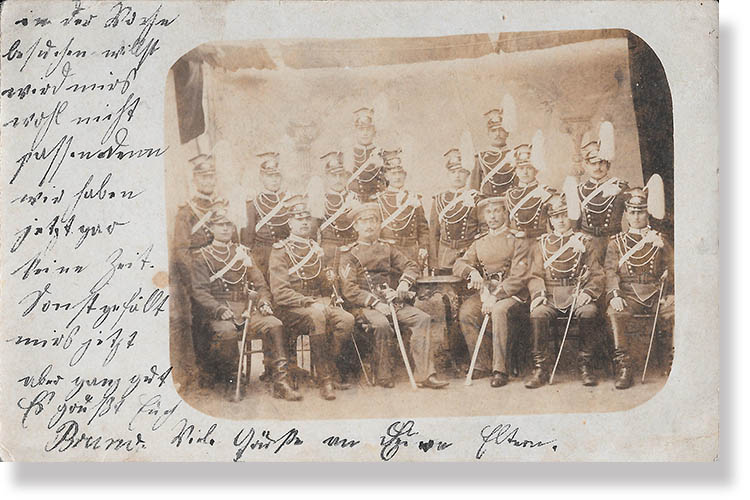 in der Woche
besuchen willst
wird mirs
wohl nicht
passen denn
wir haben
jetzt gar
keine Zeit.
Sonst gefällt
mirs jetzt
aber ganz gut
Es grüßt Euch
Bruno. Viele Grüße an Eltern.